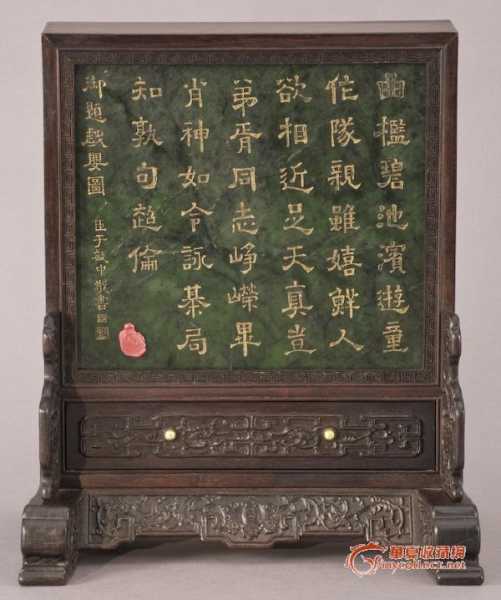 曲檻碧池濱遊童
作隊親雖嬉鮮人
欲相近足天真豈
弟胥同志崢嶸畢
肖神如令詠棊局
知孰句超倫
御題戲嬰圖
臣于敏中敬書
華夏收藏網
mycollect.net